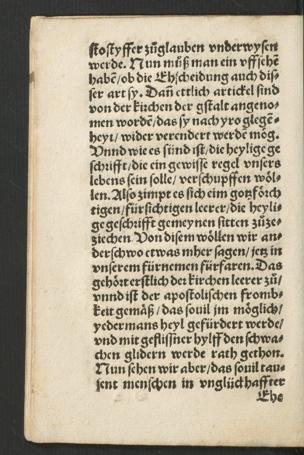 stostyffer zůglauben vnderwysen
werde. Nun můß man ein vffsehẽ
habẽ / ob die Ehscheidung auch dis-
ser art sy. Dañ ettlich artickel sind
von der kirchen der gstalt angeno-
men wordẽ / das sy nach yro glegẽ-
heyt / wider verendert werde mög.
Vnnd wie es sünd ist / die heylige ge
schrifft / die ein gewisse regel vnsers
lebens sein solle / verschupffen wöl-
len. Also zimpt es sich eim gotzförch
tigen / fürsichtigen leerer / die heyli-
ge geschrifft gemeynen sitten zůze-
ziechen. Von disem wöllen wir an-
derschwo etwas mher sagen / jetz in
vnserem fürnemen fürfaren. Das
gehört erstlich der kirchen leerer zů /
vnnd ist der apostolischen fromb-
keit gemäß / das souil im möglich /
yedermans heyl gefürdert werde /
vnd mit geflissner hylff den schwa-
chen glidern werde rath gethon.
Nun sehen wir aber / das souil tau-
sent menschen in vnglückhaffter
Ehe